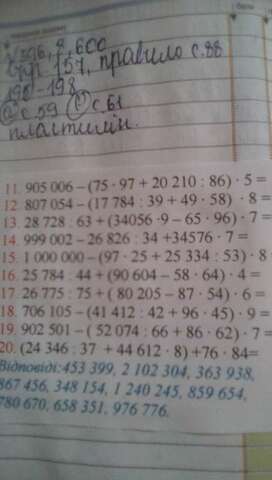 600
правило с.88
с.59 с.61
пластилін.
11. 905 006 – (75 · 97 + 20 210 : 86) · 5 =
12. 807 054 – (17 784 : 39 + 49 · 58) · 8 =
13. 28 728 : 63 + (34056 ·9 – 65 · 96) · 7 =
14. 999 002 – 26 826 : 34 +34576 · 7 =
15. 1 000 000 – (97 · 25 + 25 334 : 53) · 8
16. 25 784 : 44 + (90 604 – 58 · 64) · 4 =
17. 26 775 : 75 + ( 80 205 – 87 · 54) · 6 =
18. 706 105 – (41 412 : 42 + 96 · 45) · 9 =
19. 902 501 – ( 52 074 : 66 + 86 · 62) · 7 =
20. (24 346 : 37 + 44 612 · 8) +76 · 84=
Відповіді: 453 399, 2 102 304, 363 938,
867 456, 348 154, 1 240 245, 859 654,
780 670, 658 351, 976 776.